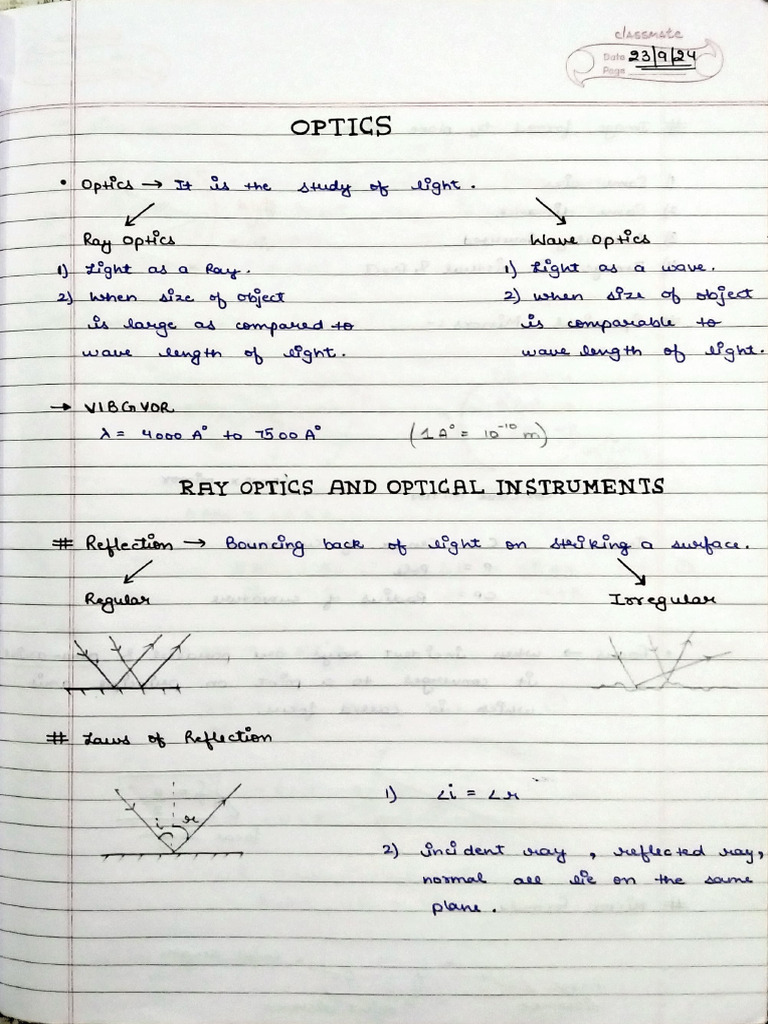 classmate
Date 23/9/24
Page
OPTICS
• Optics → It is the study of light.
Ray Optics
Wave Optics
1) Light as a Ray.
1) Light as a wave.
2) When size of object
2) When size of object
is large as compared to
is comparable to
wave length of light.
wave length of light.
→ VIBGYOR
λ = 4000 A° to 7500 A° (1 A° = 10⁻¹⁰ m)
RAY OPTICS AND OPTICAL INSTRUMENTS
# Reflection → Bouncing back of light on striking a surface.
Regular
Irregular
# Laws of Reflection
i r
1) ∠i = ∠r
2) incident ray, reflected ray,
normal all lie on the same
plane.